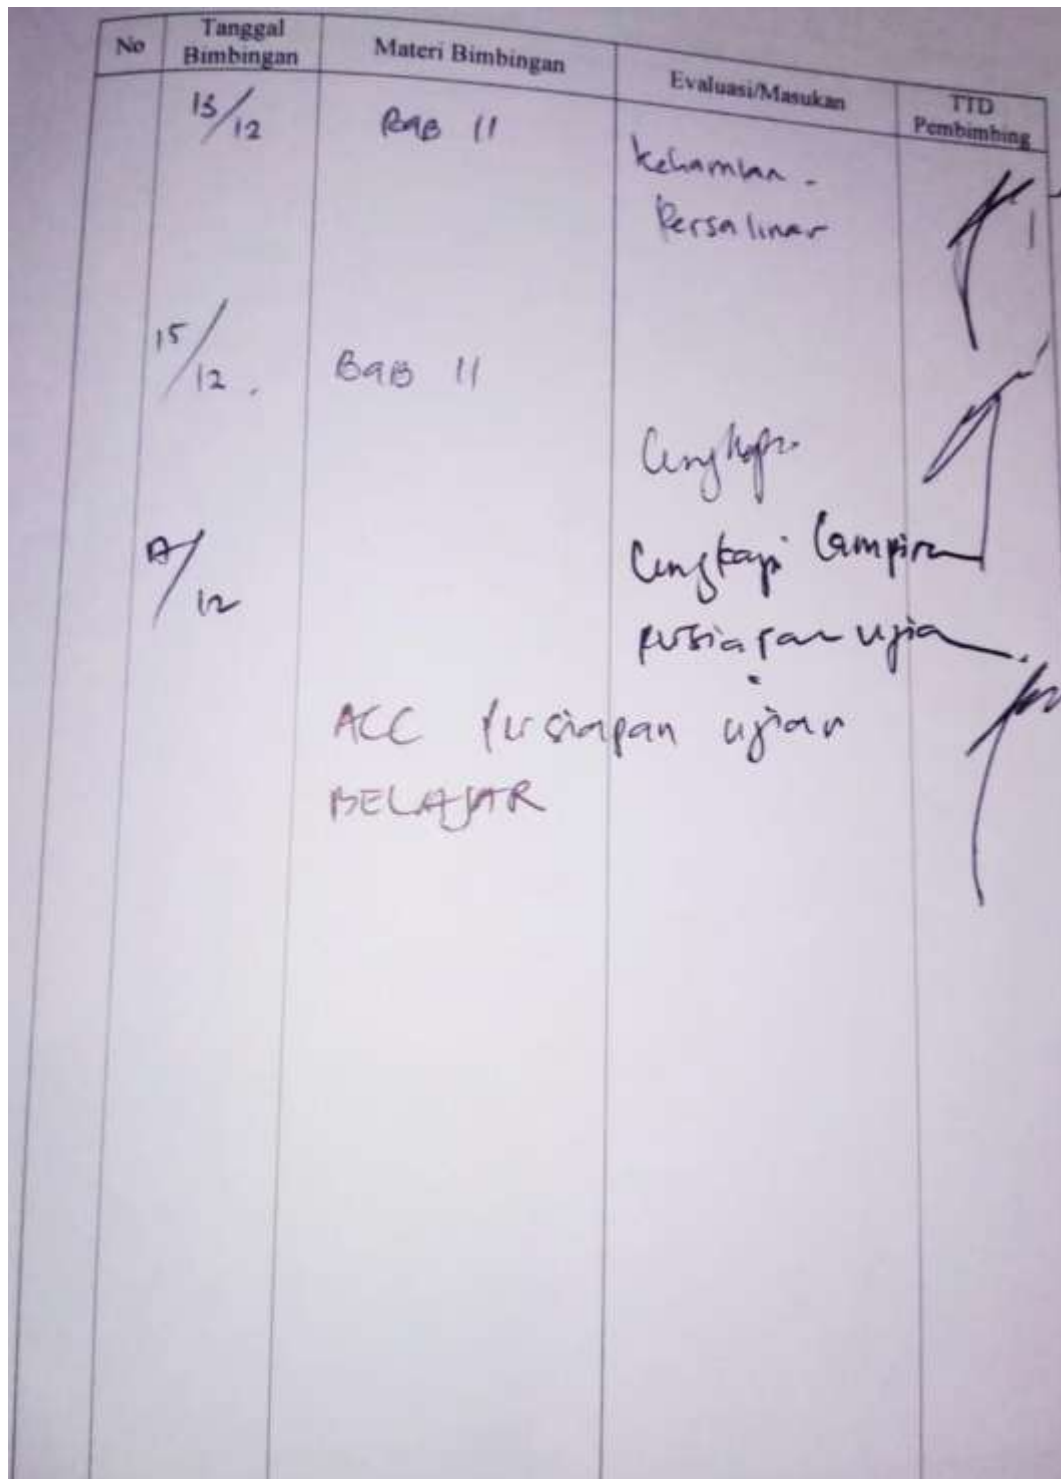 No Tanggal Bimbingan Materi Bimbingan Evaluasi/Masukan TTD Pembimbing
13/12 BAB II
Kehamilan -
Persalinan
15/12 . BAB II
Lengkapi
/12 Lengkapi Lampiran
persiapan ujian
ACC persiapan ujian
BELAJAR